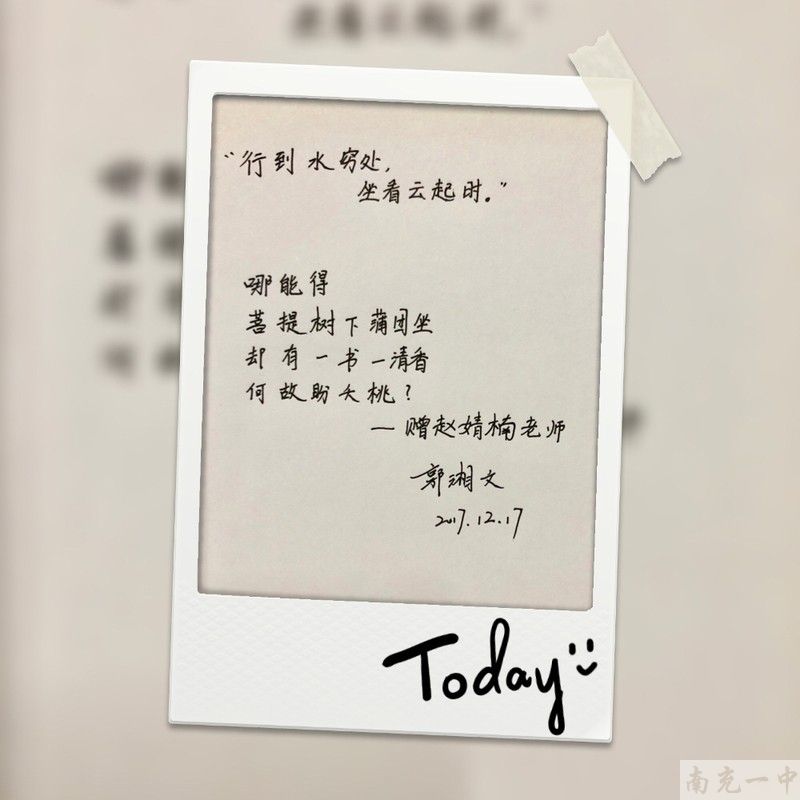 “行到水穷处,
坐看云起时。”
哪能得
菩提树下蒲团坐
却有一书一清香
何故盼夭桃?
— 赠赵婧楠老师
郭湘文
2017.12.17
Today
南充一中